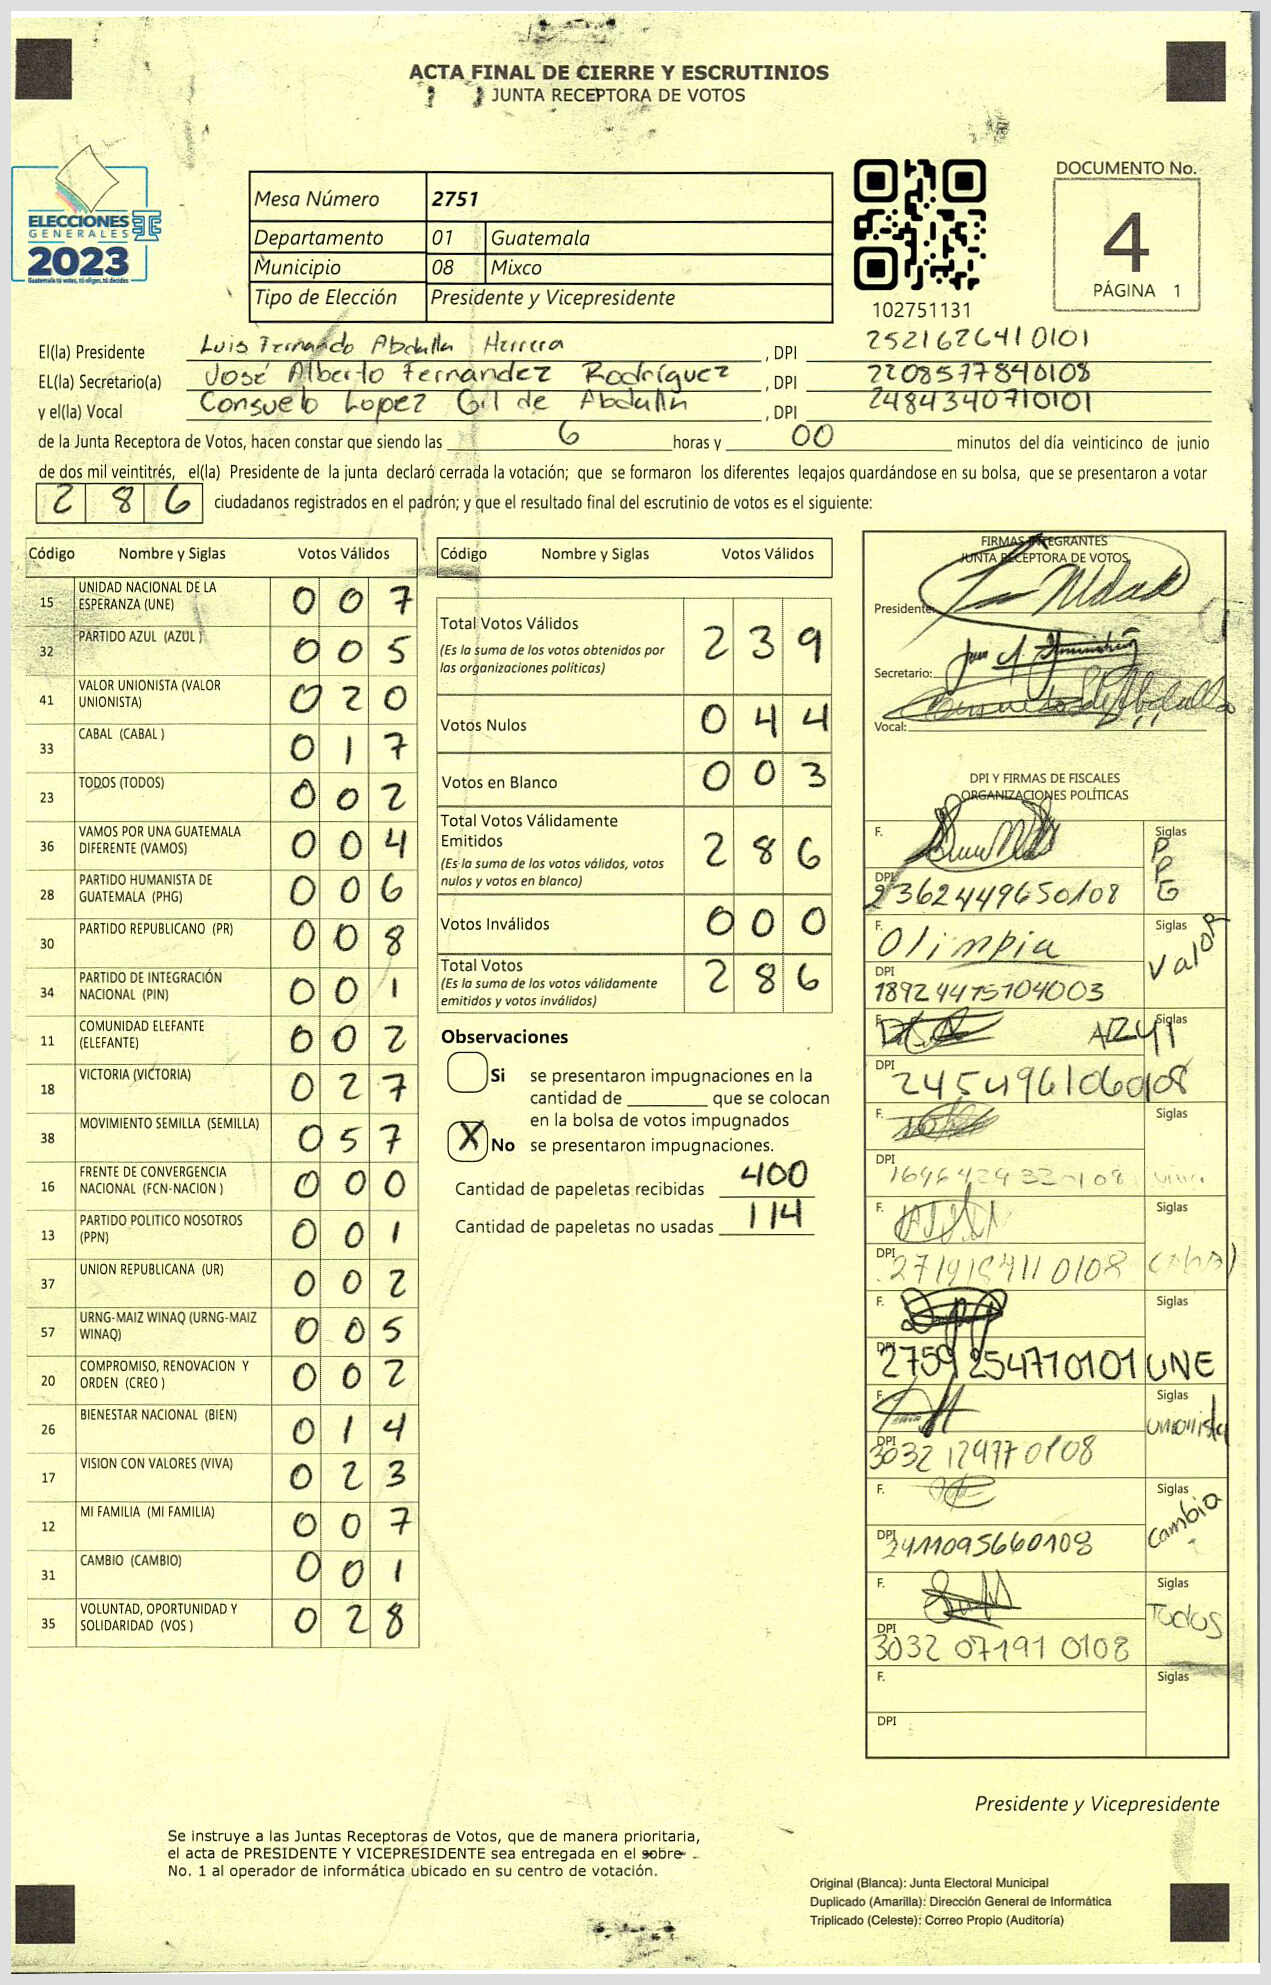 ACTA FINAL DE CIERRE Y ESCRUTINIOS
JUNTA RECEPTORA DE VOTOS
ELECCIONES
GENERALES
2023
Guatemala tú votas, tú eliges, tú decides
Mesa Número 2751
Departamento 01 Guatemala
Municipio 08 Mixco
Tipo de Elección Presidente y Vicepresidente
102751131
DOCUMENTO No.
4
PÁGINA 1
El(la) Presidente Luis Fernando Abdalla Herrera , DPI 2521626410101
EL(la) Secretario(a) José Alberto Fernandez Rodríguez , DPI 2208577840108
y el(la) Vocal Consuelo Lopez Gil de Abdalla , DPI 2484340710101
de la Junta Receptora de Votos, hacen constar que siendo las 6 horas y 00 minutos del día veinticinco de junio
de dos mil veintitrés, el(la) Presidente de la junta declaró cerrada la votación; que se formaron los diferentes legajos guardándose en su bolsa, que se presentaron a votar
286 ciudadanos registrados en el padrón; y que el resultado final del escrutinio de votos es el siguiente:
Código Nombre y Siglas Votos Válidos
15 UNIDAD NACIONAL DE LA ESPERANZA (UNE) 007
32 PARTIDO AZUL (AZUL ) 005
41 VALOR UNIONISTA (VALOR UNIONISTA) 020
33 CABAL (CABAL ) 017
23 TODOS (TODOS) 002
36 VAMOS POR UNA GUATEMALA DIFERENTE (VAMOS) 004
28 PARTIDO HUMANISTA DE GUATEMALA (PHG) 006
30 PARTIDO REPUBLICANO (PR) 008
34 PARTIDO DE INTEGRACIÓN NACIONAL (PIN) 001
11 COMUNIDAD ELEFANTE (ELEFANTE) 002
18 VICTORIA (VICTORIA) 027
38 MOVIMIENTO SEMILLA (SEMILLA) 057
16 FRENTE DE CONVERGENCIA NACIONAL (FCN-NACION ) 000
13 PARTIDO POLITICO NOSOTROS (PPN) 001
37 UNION REPUBLICANA (UR) 002
57 URNG-MAIZ WINAQ (URNG-MAIZ WINAQ) 005
20 COMPROMISO, RENOVACION Y ORDEN (CREO ) 002
26 BIENESTAR NACIONAL (BIEN) 014
17 VISION CON VALORES (VIVA) 023
12 MI FAMILIA (MI FAMILIA) 007
31 CAMBIO (CAMBIO) 001
35 VOLUNTAD, OPORTUNIDAD Y SOLIDARIDAD (VOS ) 028
Código Nombre y Siglas Votos Válidos
Total Votos Válidos 239
(Es la suma de los votos obtenidos por
las organizaciones políticas)
Votos Nulos 044
Votos en Blanco 003
Total Votos Válidamente
Emitidos 286
(Es la suma de los votos válidos, votos
nulos y votos en blanco)
Votos Inválidos 000
Total Votos 286
(Es la suma de los votos válidamente
emitidos y votos inválidos)
Observaciones
Si se presentaron impugnaciones en la
cantidad de ________ que se colocan
en la bolsa de votos impugnados
X No se presentaron impugnaciones.
Cantidad de papeletas recibidas 400
Cantidad de papeletas no usadas 114
FIRMAS INTEGRANTES
JUNTA RECEPTORA DE VOTOS
Presidente:
Secretario:
Vocal:
DPI Y FIRMAS DE FISCALES
ORGANIZACIONES POLÍTICAS
F. Siglas PPG
DPI 2362449650108
F. Olimpia Siglas Valor
DPI 18924475104003
F. Siglas AZUL
DPI 2454961060108
F. Siglas
DPI
F. Siglas
DPI
F. Siglas UNE
DPI 2759254710101
F. Siglas unionista
DPI 3032129770108
F. Siglas Cambio
DPI 2411095660108
F. Siglas Todos
DPI 3032071910108
F. Siglas
DPI
Presidente y Vicepresidente
Se instruye a las Juntas Receptoras de Votos, que de manera prioritaria,
el acta de PRESIDENTE Y VICEPRESIDENTE sea entregada en el sobre
No. 1 al operador de informática ubicado en su centro de votación.
Original (Blanca): Junta Electoral Municipal
Duplicado (Amarilla): Dirección General de Informática
Triplicado (Celeste): Correo Propio (Auditoría)